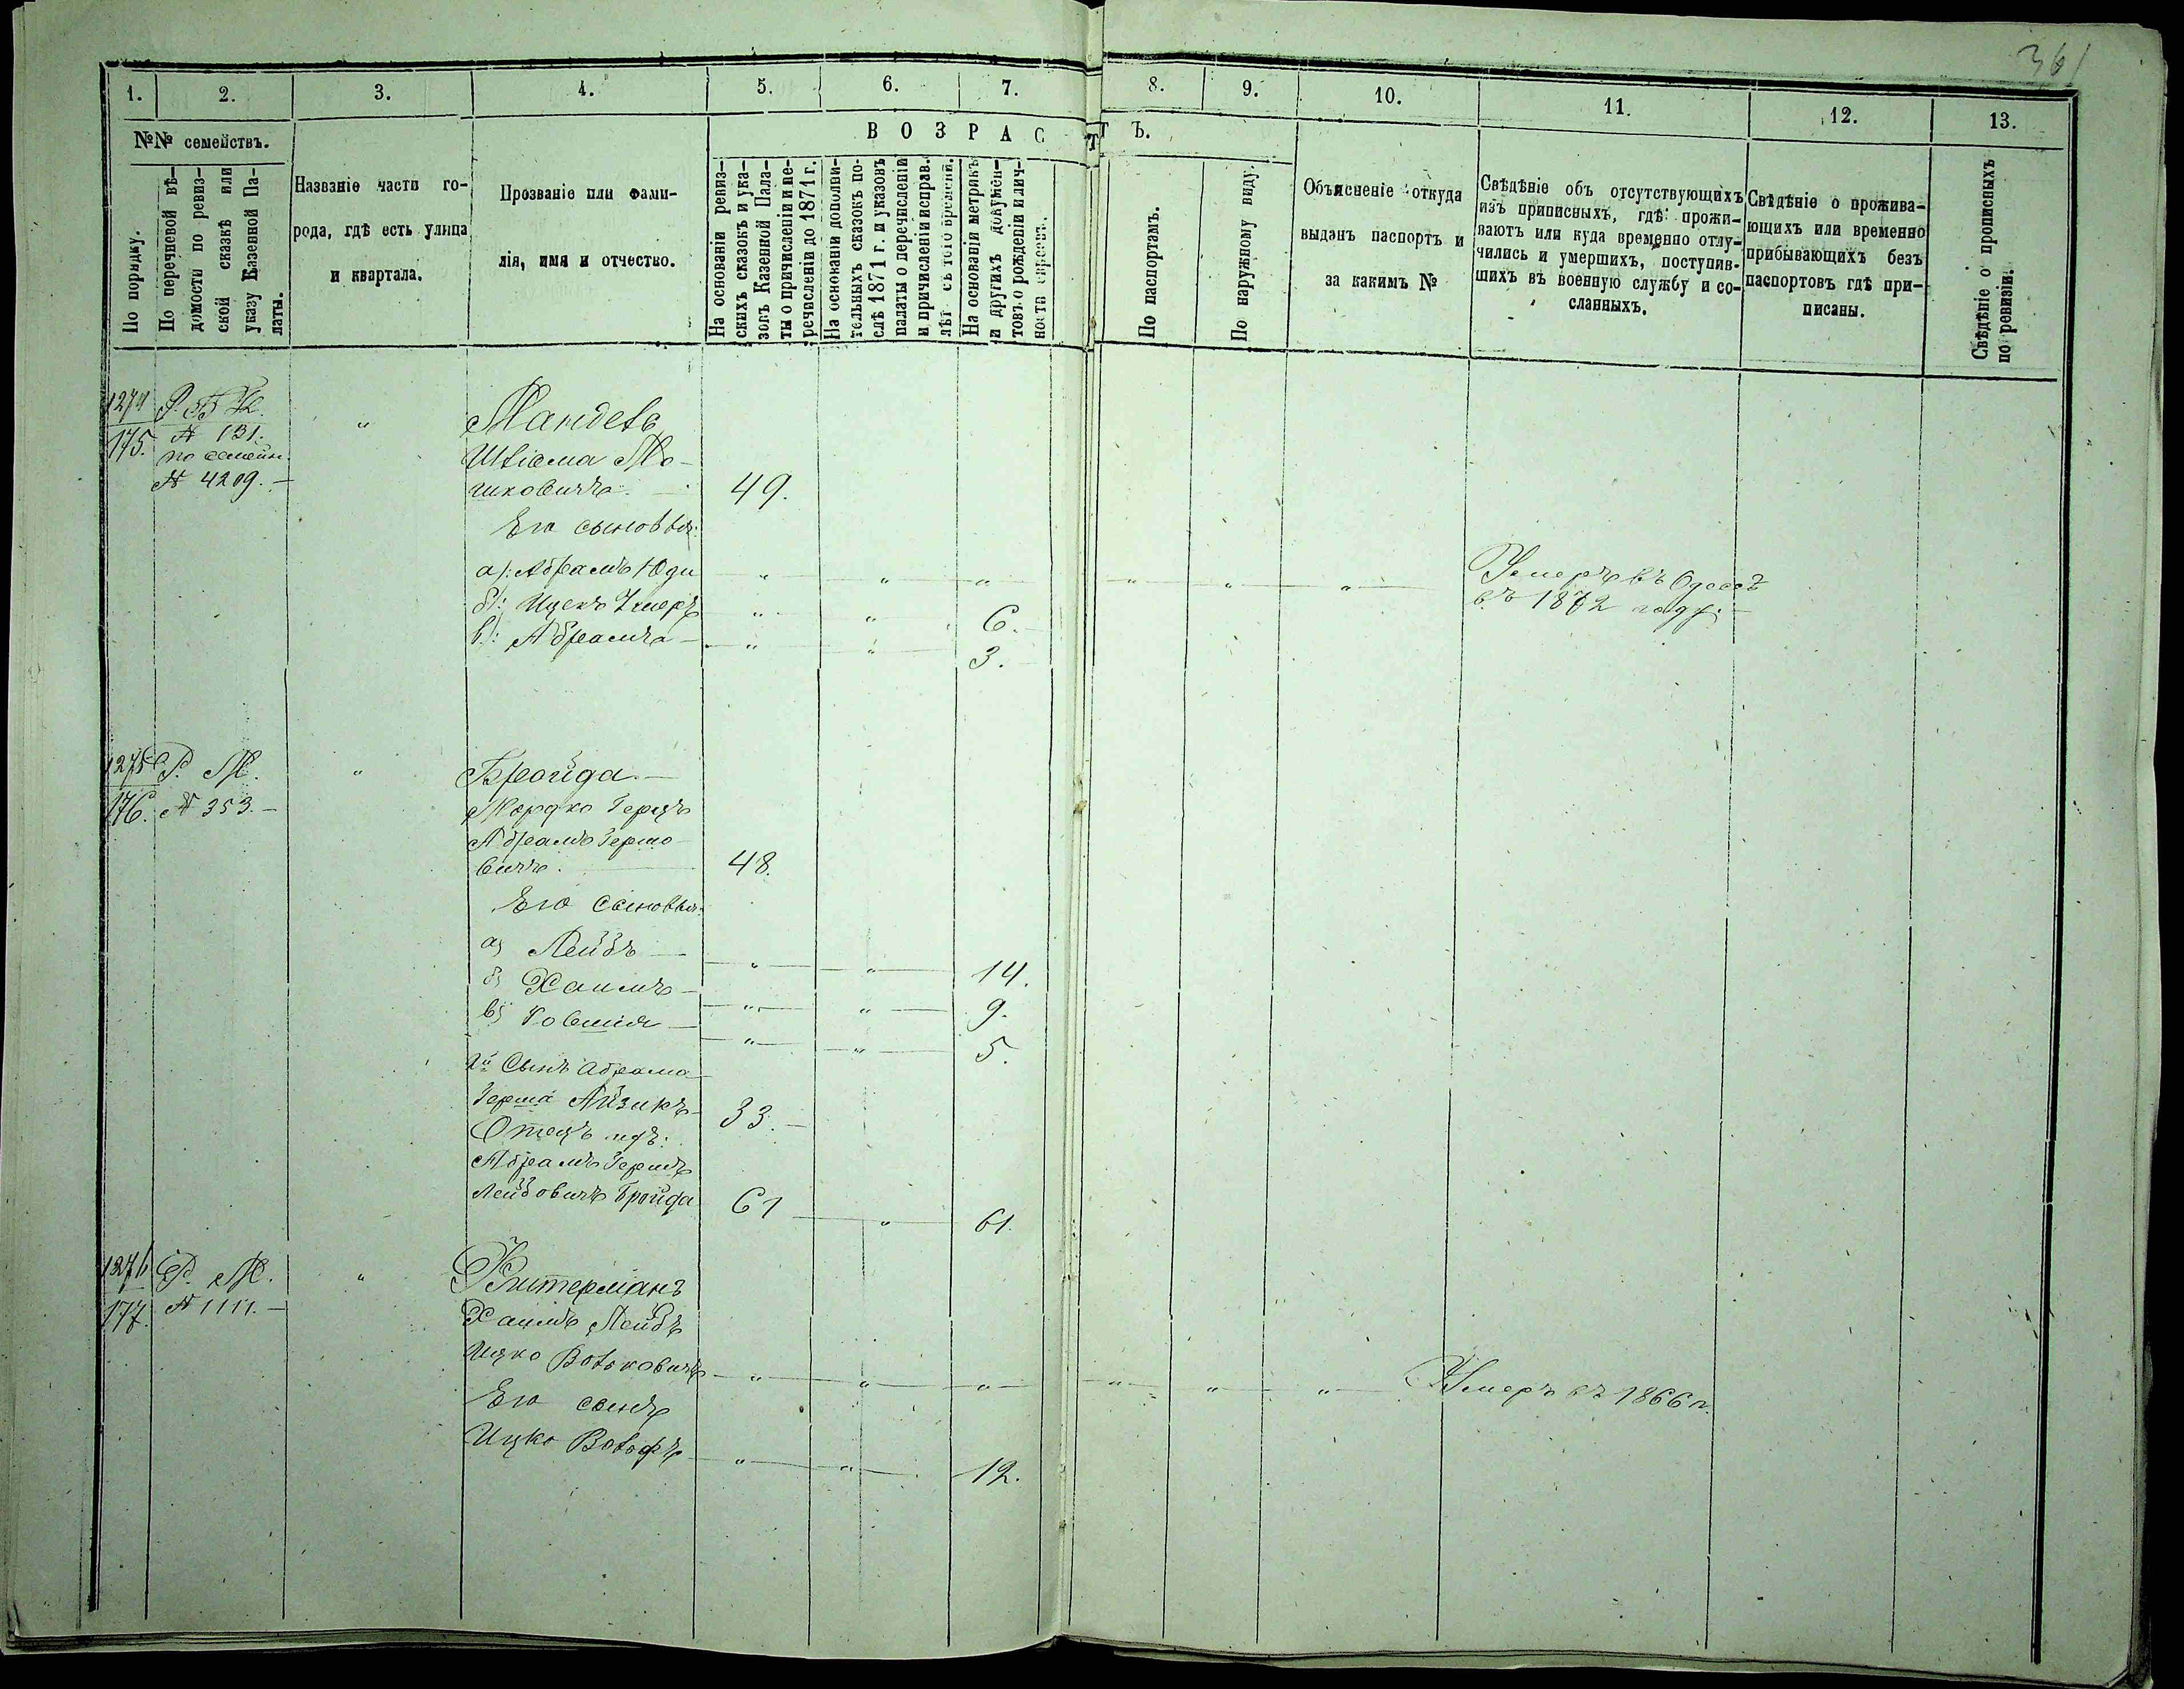 361
1. 2. 3. 4. 5. 6. 7. 8. 9. 10. 11. 12. 13.
№№ семействъ.
В О З Р А С Т Ъ.
По порядку.
По перечневой вѣ-
домости по ревиз-
ской сказкѣ или
указу Казенной Па-
латы.
Названіе части го-
рода, гдѣ есть улица
и квартала.
Прозваніе или фами-
лія, имя и отчество.
На основаніи ревиз-
скихъ сказокъ и ука-
зовъ Казенной Пала-
ты о причисленіи и пе-
речисленіи до 1871 г.
На основаніи дополни-
тельныхъ сказокъ по-
слѣ 1871 г. и указовъ
палаты о перечисленіи
и причисленіи исправ.
лѣт съ того времени.
На основаніи метрикъ
и другихъ докумен-
товъ о рожденіи и лич-
ности евреевъ.
По паспортамъ.
По наружному виду.
Объясненіе откуда
выданъ паспортъ и
за какимъ №
Свѣдѣніе объ отсутствующихъ
изъ приписныхъ, гдѣ прожи-
ваютъ или куда временно отлу-
чились и умершихъ, поступив-
шихъ въ военную службу и со-
сланныхъ.
Свѣдѣніе о прожива-
ющихъ или временно
прибывающихъ безъ
паспортовъ гдѣ при-
писаны.
Свѣдѣніе о прописныхъ
по ревизіи.
1274
175.
№ 131.
по семейн.
№ 4209. —
"
Мандель
Шліома Мо-
шковичъ. — 49.
Его сыновья:
а): Абрамъ Юди " " " " " " Умеръ въ Одессѣ
въ 1872 году. —
б): Ицекъ " " 6.
в): Абрамъ — " " 3.
1275 Р. М. " Бройда. —
176. № 353. —
Мордко Герцъ
Абрамъ Гершо-
вичъ. 48.
Его сыновья:
а) Лейбъ — " " 14.
б) Хаимъ — " " 9.
в) " " 5.
2й Сынъ Абрама
Герша Айзикъ — 33. —
Отецъ ихъ:
Абрамъ Гершъ
Лейбовичъ Бройда 61 " 61.
1276 Р. М. "
177. № 1111. —
Хаимъ Лейбъ
Ицко Вольковичъ — " " " " " " Умеръ въ 1866 г.
Его сынъ
Ицко Вольфъ — " " 12.